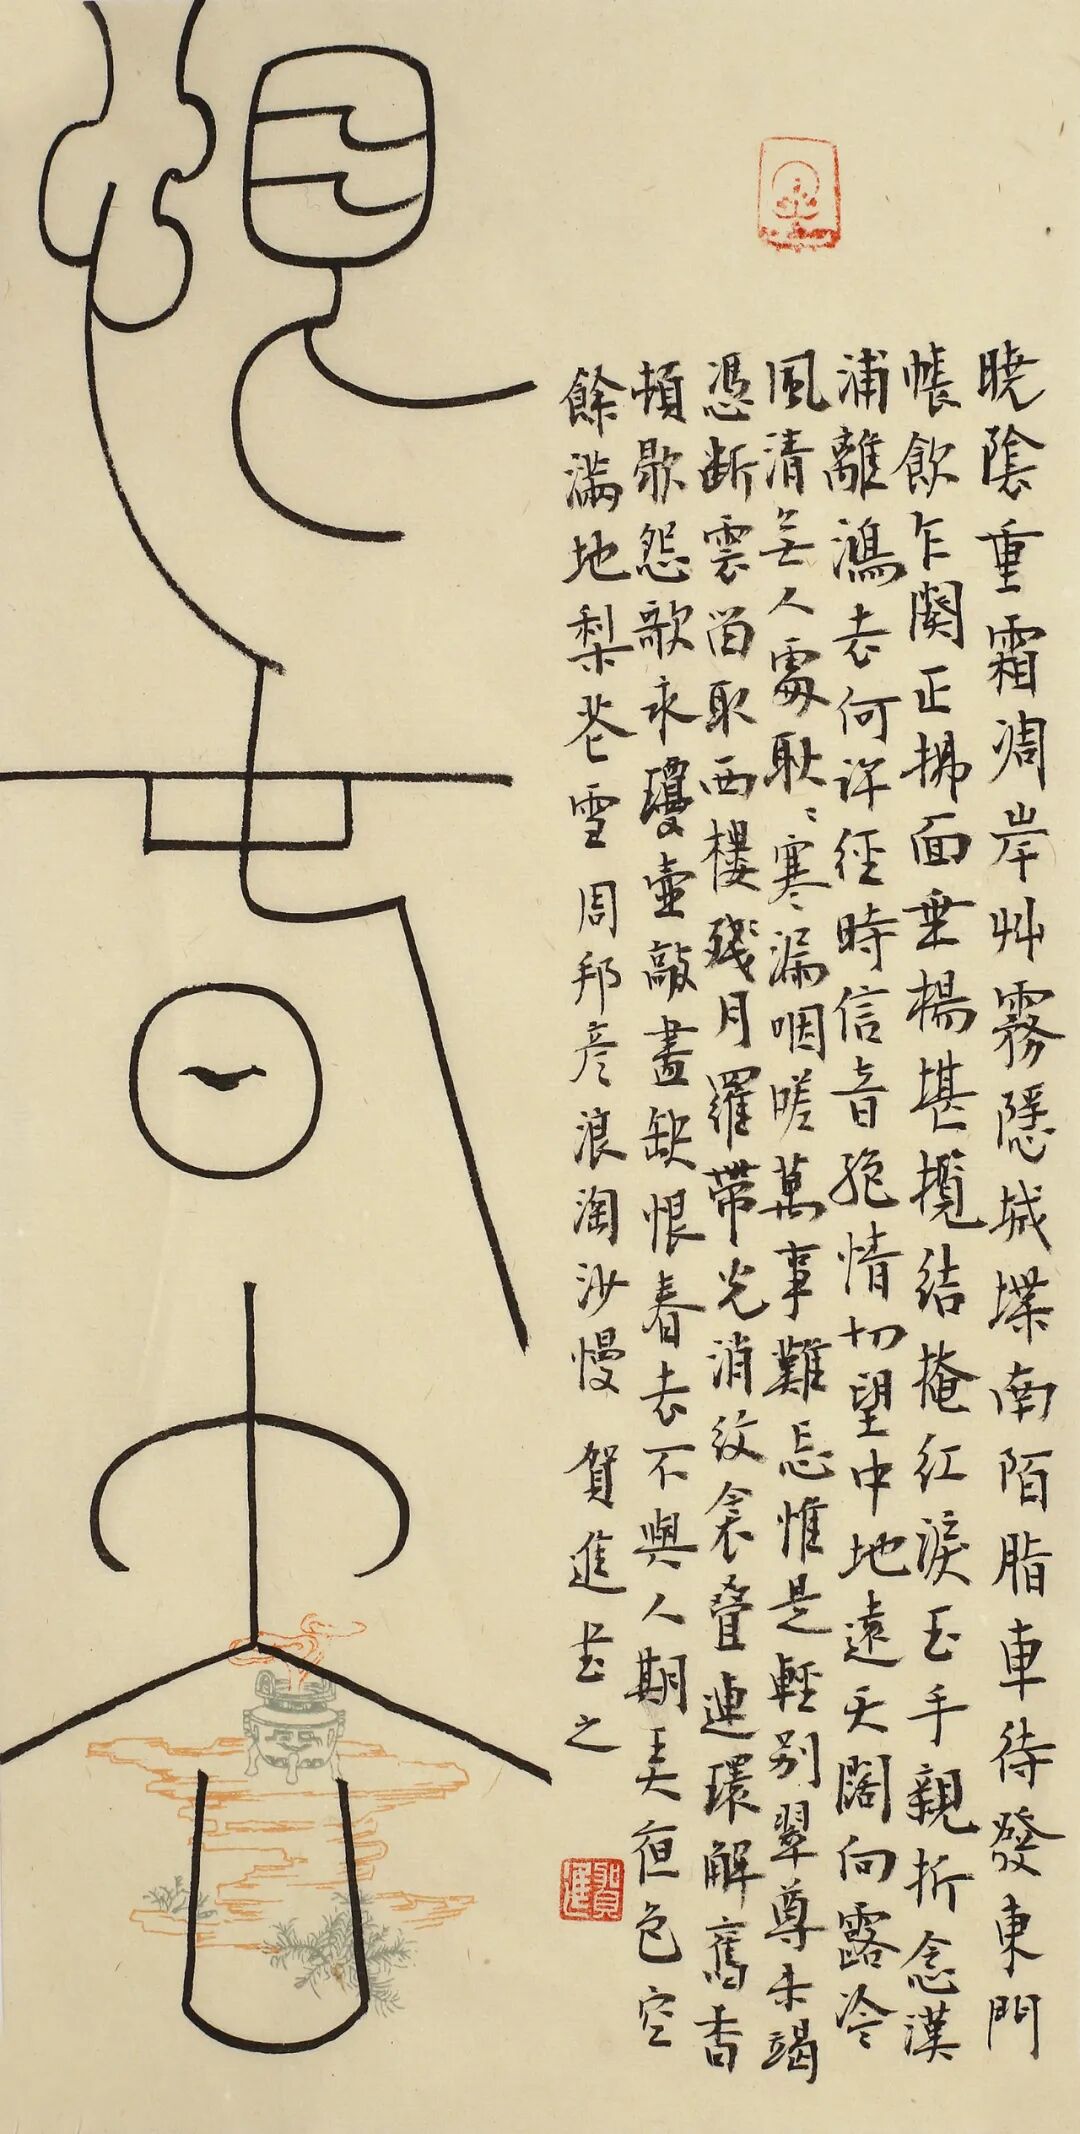 曉陰重霜凋岸艸霧隱城堞南陌脂車待發東門
帳飲乍闋正拂面垂楊堪攬結掩紅淚玉手親折念漢
浦離鴻去何許經時信音絕情切望中地遠天闊向露冷
風清无人處耿〻寒漏咽嗟萬事難忘惟是輕別翠尊未竭
憑斷雲留取西樓殘月羅帶光消紋衾疊連環解舊香
頓歇怨歌永瓊壺敲盡缺恨春去不與人期弄夜色空
餘滿地梨花雪 周邦彥浪淘沙慢 賀進書之
賀進